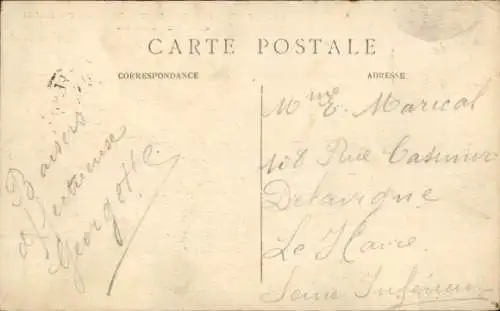 CARTE POSTALE
CORRESPONDANCE
ADRESSE
Baisers
affectueuse
Georgette
Mme E. Marical
108 Rue Casimir
Delavigne
Le Havre
Seine Inférieure